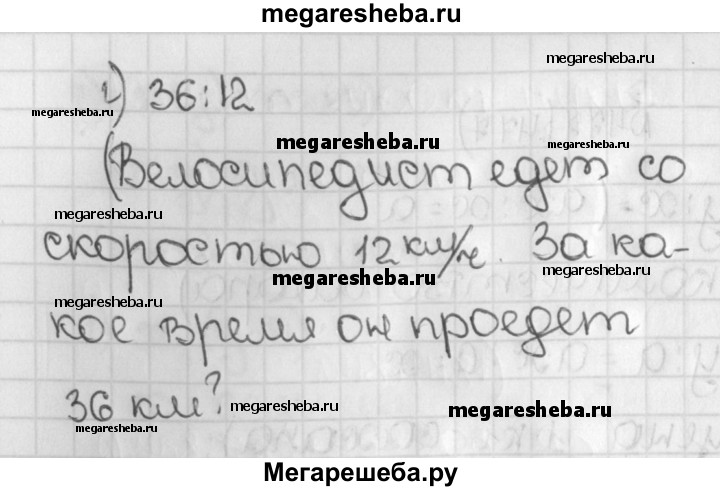 megaresheba.ru
megaresheba.ru
г) 36:12
megaresheba.ru
megaresheba.ru
(Велосипедист едет со
megaresheba.ru
скоростью 12 км/ч. За ка-
megaresheba.ru
megaresheba.ru
megaresheba.ru
кое время он проедет
36 км?
megaresheba.ru
megaresheba.ru
megaresheba.ru
Мегарешеба.ру